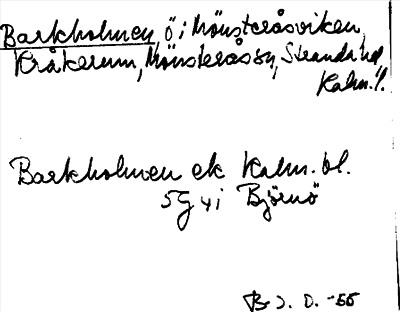 Barkholmen, ö i Mönsteråsviken,
Kråkerum, Mönsterås sn, Stranda hd,
Kalm. l.
Barkholmen ek Kalm. bl.
5G 4 i Björnö
B. J. D. -55